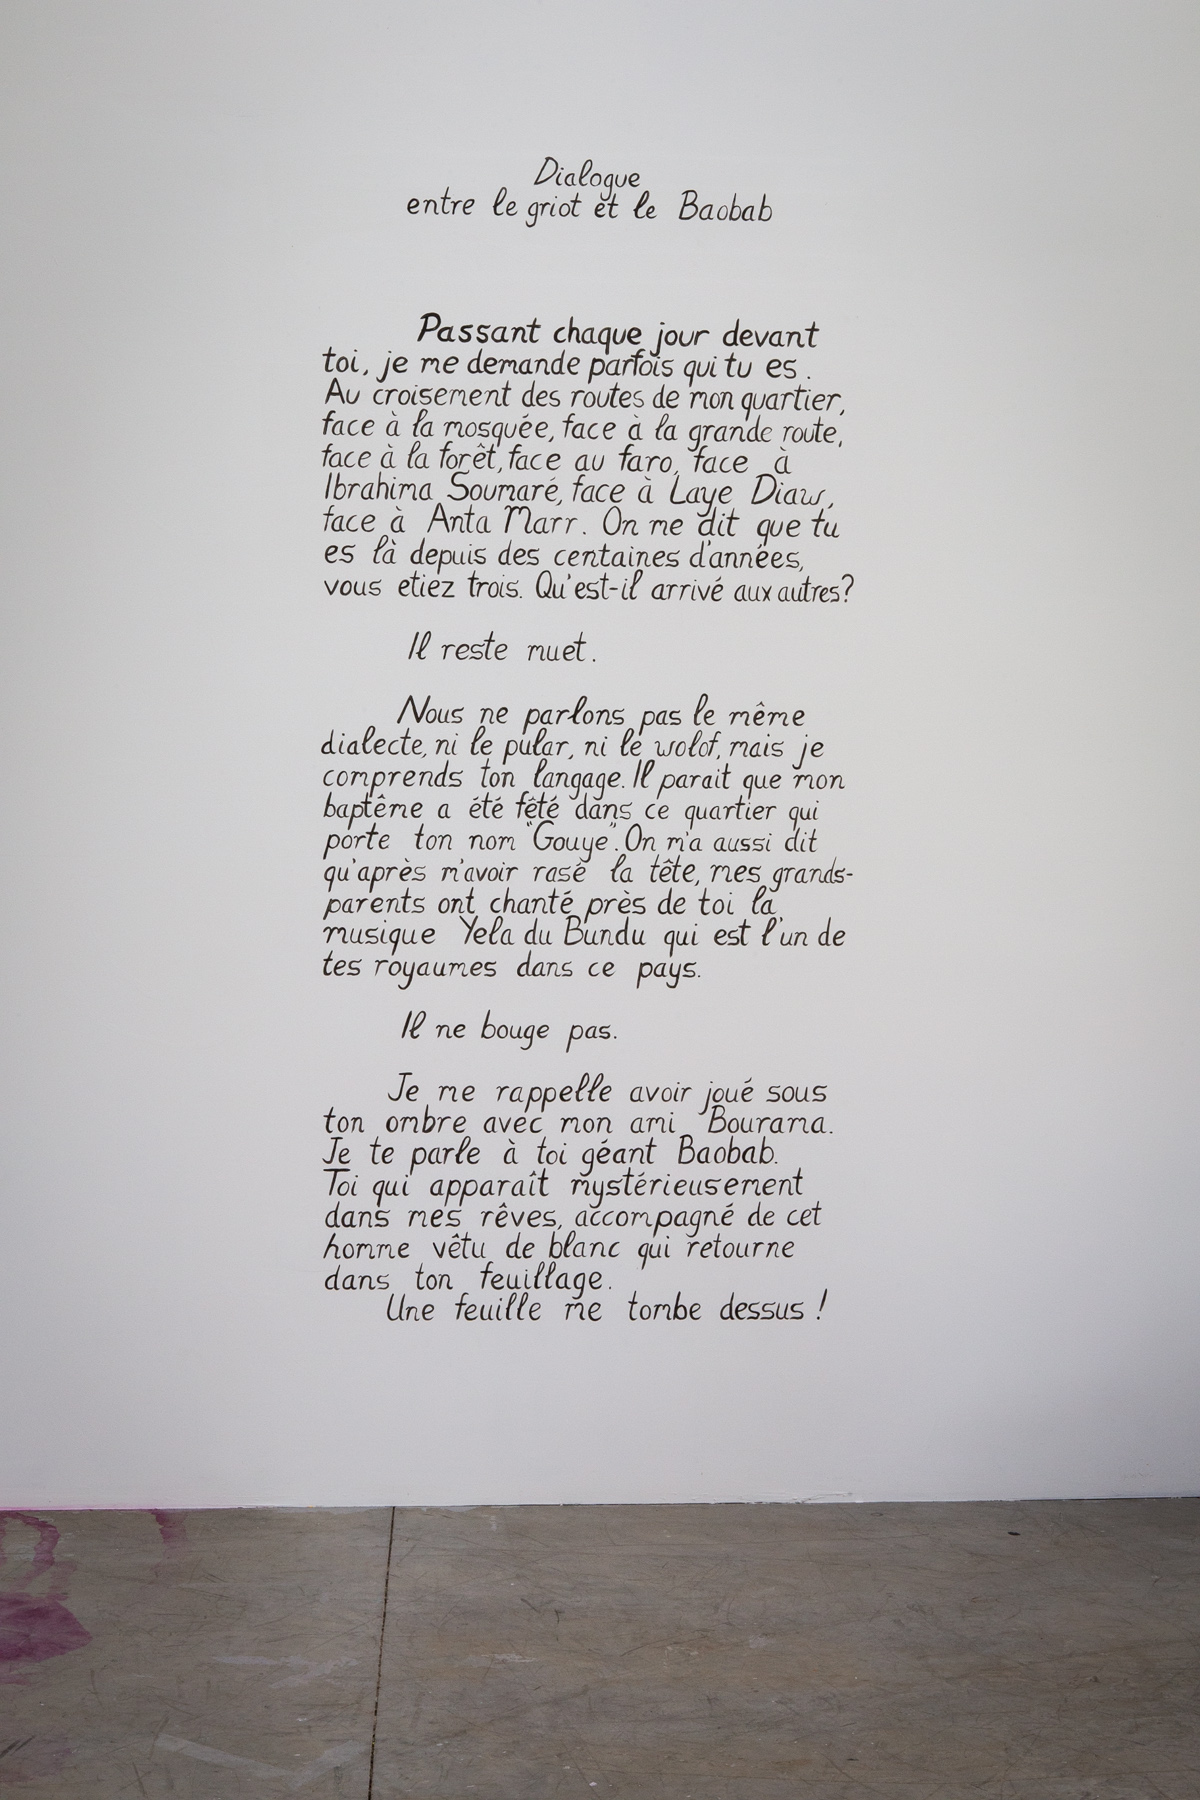 Dialogue
entre le griot et le Baobab
Passant chaque jour devant
toi, je me demande parfois qui tu es.
Au croisement des routes de mon quartier,
face à la mosquée, face à la grande route,
face à la forêt, face au faro, face à
Ibrahima Soumaré, face à Laye Diaw,
face à Anta Marr. On me dit que tu
es là depuis des centaines d'années,
vous etiez trois. Qu'est-il arrivé aux autres?
Il reste muet.
Nous ne parlons pas le même
dialecte, ni le pular, ni le wolof, mais je
comprends ton langage. Il parait que mon
baptême a été fêté dans ce quartier qui
porte ton nom "Gouye". On m'a aussi dit
qu'après m'avoir rasé la tête, mes grands-
parents ont chanté près de toi la
musique Yela du Bundu qui est l'un de
tes royaumes dans ce pays.
Il ne bouge pas.
Je me rappelle avoir joué sous
ton ombre avec mon ami Bourama.
Je te parle à toi géant Baobab.
Toi qui apparaît mystérieusement
dans mes rêves, accompagné de cet
homme vêtu de blanc qui retourne
dans ton feuillage.
Une feuille me tombe dessus !